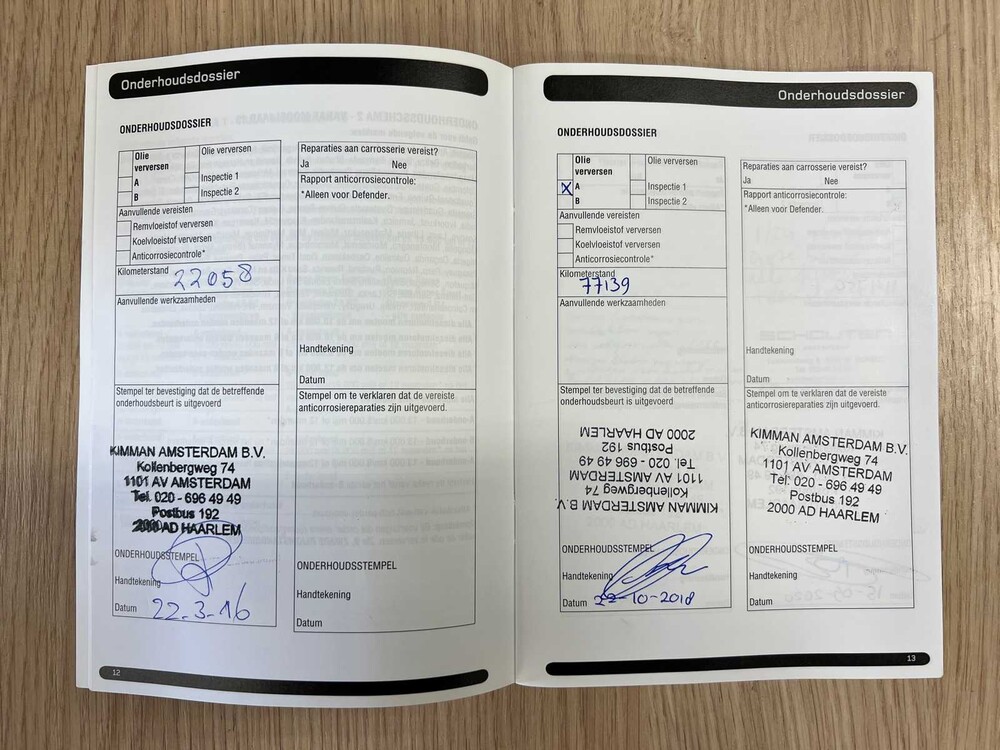 Onderhoudsdossier
ONDERHOUDSDOSSIER
Olie verversen
A
B
Olie verversen
Inspectie 1
Inspectie 2
Aanvullende vereisten
Remvloeistof verversen
Koelvloeistof verversen
Anticorrosiecontrole*
Kilometerstand
22058
Aanvullende werkzaamheden
Stempel ter bevestiging dat de betreffende
onderhoudsbeurt is uitgevoerd
KIMMAN AMSTERDAM B.V.
Kollenbergweg 74
1101 AV AMSTERDAM
Tel. 020 - 696 49 49
Postbus 192
2000 AD HAARLEM
ONDERHOUDSSTEMPEL
Handtekening
Datum 22-3-16
Reparaties aan carrosserie vereist?
Ja Nee
Rapport anticorrosiecontrole:
*Alleen voor Defender.
Handtekening
Datum
Stempel om te verklaren dat de vereiste
anticorrosiereparaties zijn uitgevoerd.
ONDERHOUDSSTEMPEL
Handtekening
Datum
12
Onderhoudsdossier
ONDERHOUDSDOSSIER
Olie
verversen
X A
B
Olie verversen
Inspectie 1
Inspectie 2
Aanvullende vereisten
Remvloeistof verversen
Koelvloeistof verversen
Anticorrosiecontrole*
Kilometerstand
77139
Aanvullende werkzaamheden
Stempel ter bevestiging dat de betreffende
onderhoudsbeurt is uitgevoerd
KIMMAN AMSTERDAM B.V.
Kollenbergweg 74
1101 AV AMSTERDAM
Tel. 020 - 696 49 49
Postbus 192
2000 AD HAARLEM
ONDERHOUDSSTEMPEL
Handtekening
Datum 22-10-2018
Reparaties aan carrosserie vereist?
Ja Nee
Rapport anticorrosiecontrole:
*Alleen voor Defender.
Handtekening
Datum
Stempel om te verklaren dat de vereiste
anticorrosiereparaties zijn uitgevoerd.
KIMMAN AMSTERDAM B.V.
Kollenbergweg 74
1101 AV AMSTERDAM
Tel: 020 - 696 49 49
Postbus 192
2000 AD HAARLEM
ONDERHOUDSSTEMPEL
Handtekening
Datum
13